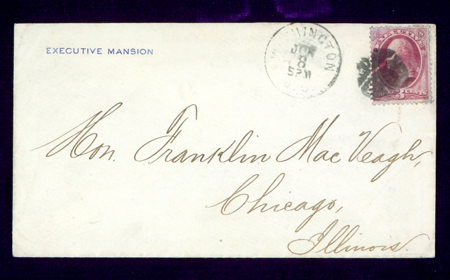 EXECUTIVE MANSION
WASHINGTON
8
5PM
Hon. Franklin MacVeagh,
Chicago,
Illinois.